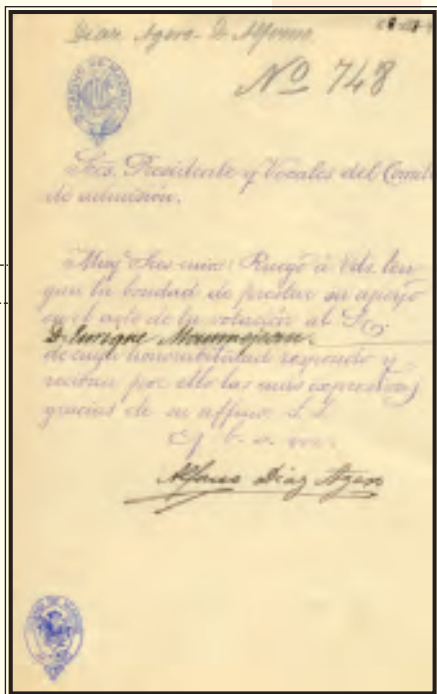 Diaz Agero - D. Alfonso
Nº 748
CASINO DE MADRID
Sres. Presidente y Vocales del Comité
de admisión.
Muy Sres. mios: Ruego á Vds. ten
gan la bondad de prestar su apoyo
en el acto de la votación al Sr.
D. Enrique Maumejean.
de cuya honorabilidad respondo y
reciban por ello las más expresivas
gracias de su affmo. S. S.
q. b. s. m.
Alfonso Diaz Agero